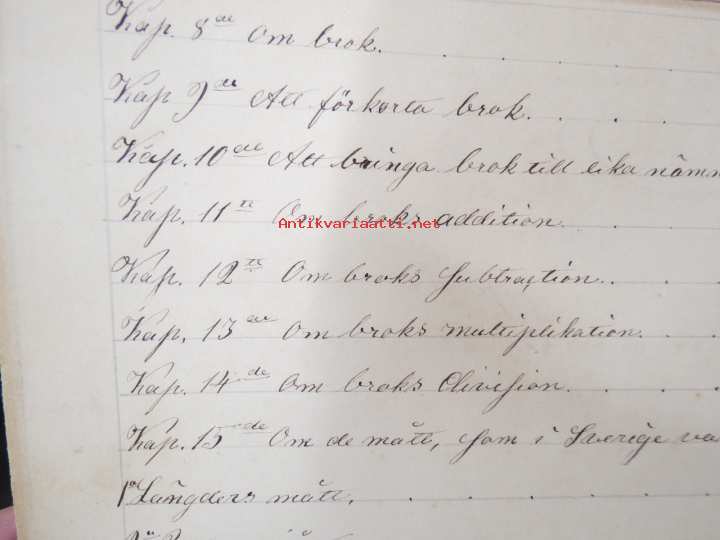 Kap. 8de Om brok. . . . .
Kap 9de Att förkorta brok. . . .
Kap. 10de Att bringa brok till lika nämn
Kap. 11te Om broks addition. . . .
Antikvariaatti.net
Kap. 12te Om broks subtraction. . . .
Kap. 13de Om broks multiplikation. . .
Kap. 14de Om broks division. . . .
Kap. 15de Om de mått, som i Sverige va
1o Längders mått. . . . . .